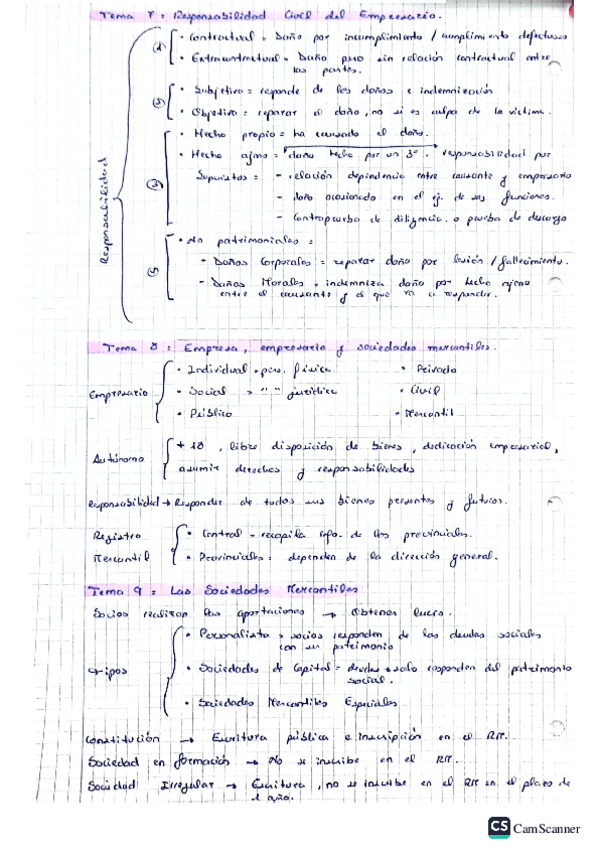 Tema 7: Responsabilidad Civil del Empresario.
Responsabilidad
• Contractual = Daño por incumplimiento / cumplimiento defectuoso
• Extracontractual = Daño pero sin relación contractual entre
las partes.
• Subjetiva = responde de los daños e indemnización
• Objetiva = reparar el daño, no si es culpa de la víctima.
• Hecho propio = ha causado el daño.
• Hecho ajeno = daño hecho por un 3º. responsabilidad por
Supuestos = - relación dependencia entre causante y empresario
- daño ocasionado en el ej. de sus funciones.
- Contraprueba de diligencia o prueba de descargo
• No patrimoniales =
- Daños Corporales = reparar daño por lesión / fallecimiento.
- Daños Morales = indemniza daño por hecho ajeno
entre el causante y el que va a responder.
Tema 8: Empresa, empresario y sociedades mercantiles.
Empresario
• Individual = per. física • Privado
• Social = " " jurídica • Civil
• Público • Mercantil
Autónomo
+ 18, libre disposición de bienes, dedicación empresarial,
asumir derechos y responsabilidades
Responsabilidad → Responder de todos sus bienes presentes y futuros.
Registro Mercantil
• Central = recopila info. de los provinciales.
• Provinciales = dependen de la dirección general.
Tema 9: Las Sociedades Mercantiles
Socios realizan las aportaciones → Obtener lucro.
Tipos
• Personalista = socios responden de las deudas sociales
con su patrimonio
• Sociedades de Capital = deudas solo responden del patrimonio
social.
• Sociedades Mercantiles Especiales
Constitución → Escritura pública e inscripción en el RM.
Sociedad en formación → No se inscribe en el RM.
Sociedad Irregular → Escritura, no se inscribe en el RM en el plazo de
1 año.
CS CamScanner